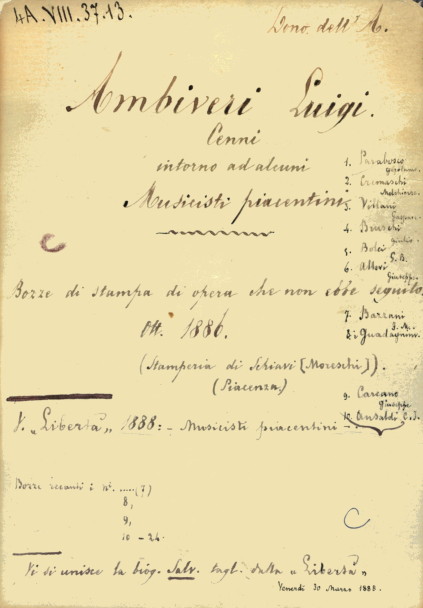 4A.VIII.37.13.
Dono dell'A.
Ambiveri Luigi.
Cenni
intorno ad alcuni
Musicisti piacentini
1. Parabosco
Girolamo.
2. Cremaschi
Melchiorre.
3. Villani
Gaspare.
4. Bruschi
Giulio.
5. Bolci
G.B.
6. Allevi
Giuseppe.
7. Bazzani
F. M.
8. i Guadagnini.
9. Carcano
Giuseppe
10. Ansaldi C. I.
Bozze di stampa di opera che non ebbe seguito.
Ott. 1886.
(Stamperia di Schiavi [Moreschi]).
(Piacenza,)
V. „Libertà„ 1888: - Musicisti piacentini -
Bozze recanti i nⁱ. .....(7)
8,
9,
10 - 24.
Vi si unisce la biog. Salv. tagl. dalla „Libertà„
Venerdì 30 Marzo 1888.